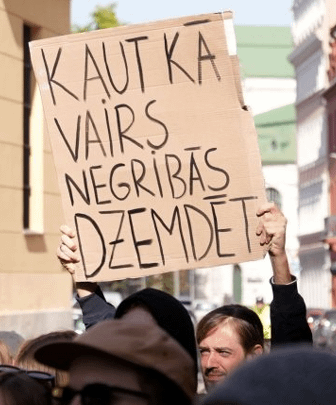 KAUT KĀ
VAIRS
NEGRIBĀS
DZEMDĒT